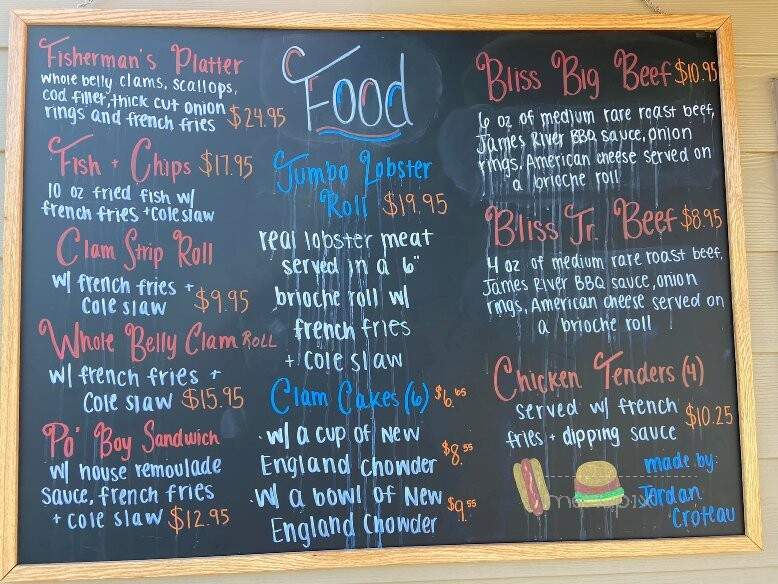 Fisherman's Platter
whole belly clams, scallops,
cod fillet, thick cut onion
rings and french fries $24.95
Fish + Chips $17.95
10 oz fried fish w/
french fries + cole slaw
Clam Strip Roll
w/ french fries +
cole slaw $9.95
Whole Belly Clam ROLL
w/ french fries +
cole slaw $15.95
Po' Boy Sandwich
w/ house remoulade
sauce, french fries
+ cole slaw $12.95
Food
Jumbo Lobster
Roll $19.95
real lobster meat
served in a 6"
brioche roll w/
french fries
+ cole slaw
Clam Cakes (6) $6.65
• w/ a cup of New
England Chowder $8.55
• w/ a bowl of New
England Chowder $9.55
Bliss Big Beef $10.95
6 oz of medium rare roast beef,
James River BBQ sauce, onion
rings, American cheese served on
a brioche roll
Bliss Jr. Beef $8.95
4 oz of medium rare roast beef,
James River BBQ sauce, onion
rings, American cheese served on
a brioche roll
Chicken Tenders (4)
served w/ french
fries + dipping sauce $10.25
made by:
Jordan
Croteau